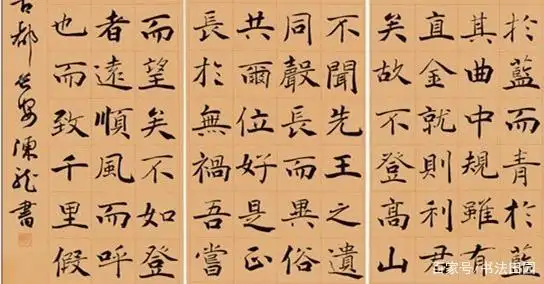 於藍而青於藍
其曲中規雖有
直金就則利君
矣故不登高山
不聞先王之遺
同聲長而異俗
共爾位好是正
長於無禍吾嘗
而望矣不如登
者遠順風而呼
也而致千里假
古都长安陳龙書
百家号/书法田园